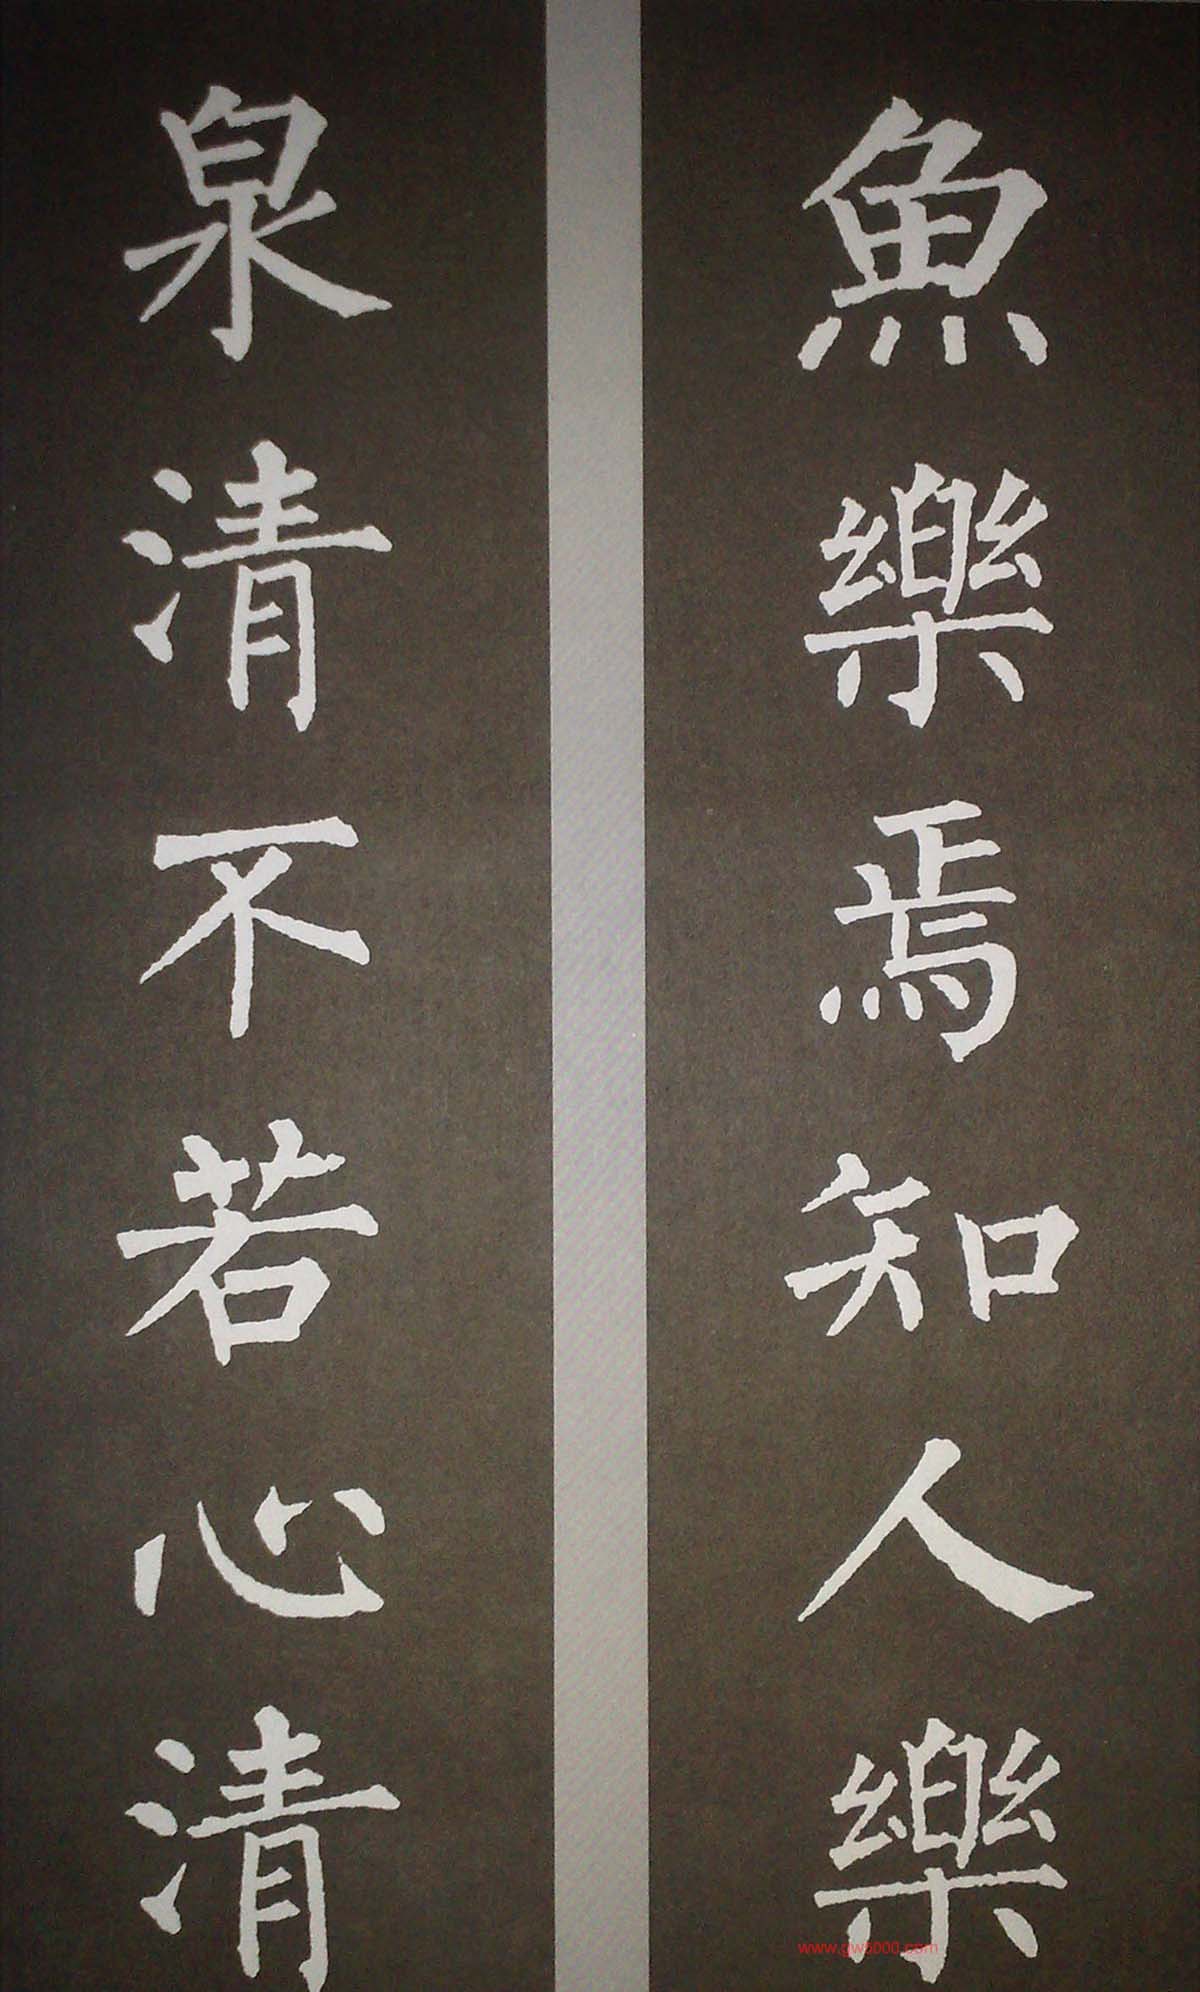 魚樂焉知人樂
泉清不若心清
www.gw5000.com